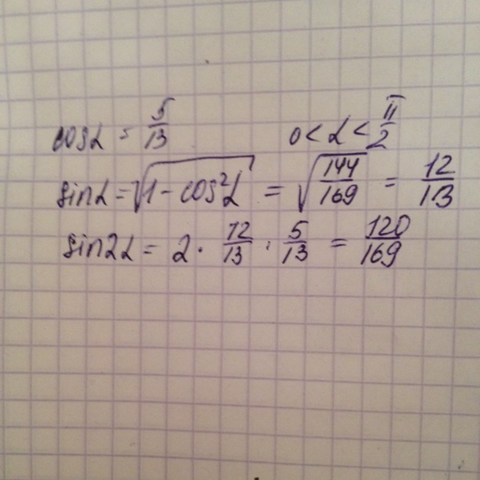 cosα = 5/13 0 < α < π/2
sinα = √(1 - cos²α) = √(144/169) = 12/13
sin2α = 2 · 12/13 · 5/13 = 120/169